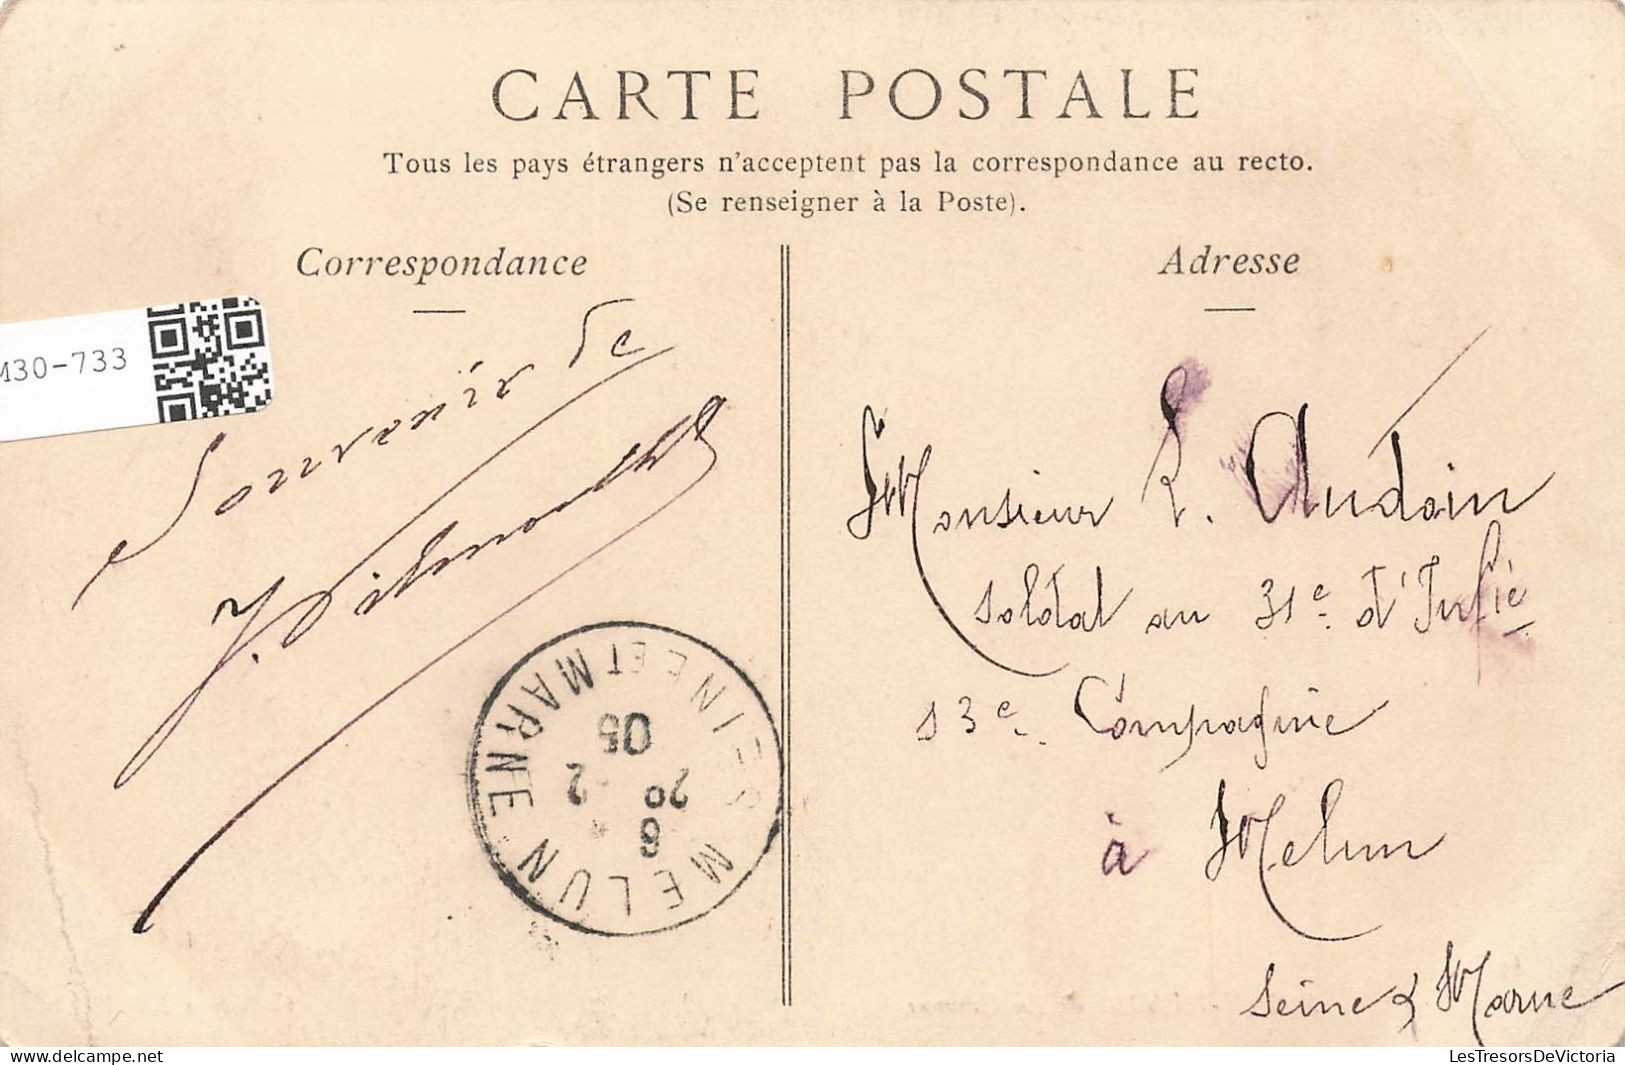 CARTE POSTALE
Tous les pays étrangers n'acceptent pas la correspondance au recto.
(Se renseigner à la Poste).
Correspondance
Adresse
M30-733
Souvenir de
J.
Monsieur L. Audoin
Soldat au 31e d'Infie
13e Compagnie
à Melun
Seine & Marne
MELUN
SEINE ET MARNE
6
20
2
05
LesTresorsDeVictoria